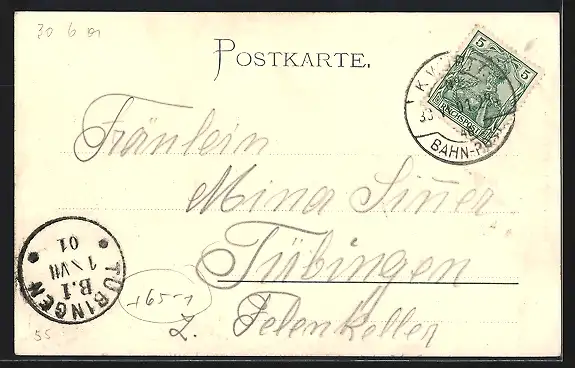 30 6 01
POSTKARTE.
5 5
REICHSPOST
BAHN-POST
Fräulein
Mina Siner
Tübingen
z. Felenkeller
TÜBINGEN
B.1
1 VII
01
+65-1
55